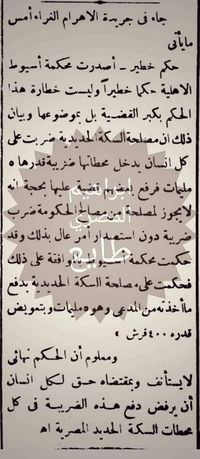 جاء فى جريدة الاهرام الغراء أمس
مايأتى
حكم خطير – أصدرت محكمة أسيوط
الاهلية حكما خطيراً وليست خطارة هذا
الحكم بكبر القضية بل بموضوعها وبيان
ذلك ان مصلحة السكة الحديدية ضربت على
كل انسان يدخل محطاتها ضريبة قدرها ٥
مليمات فرفع بعضهم قضية عليها بحجة انه
لايجوز لمصلحة من مصالح الحكومة ضرب
ضريبة دون استصدار أمر عال بذلك وقد
حكمت محكمة أسيوط بموافقة على ذلك
فحكمت على مصلحة السكة الحديدية بدفع
ما أخذته من المدعى وهو ٥ مليمات وبتعويض
قدره ٤٠٠ قرش »
ومعلوم أن الحكم نهائى
لايستأنف وبمقتضاه حق لكل انسان
أن يرفض دفع هذه الضريبة فى كل
محطات السكة الحديد المصرية اه
ابراهيم
طايع